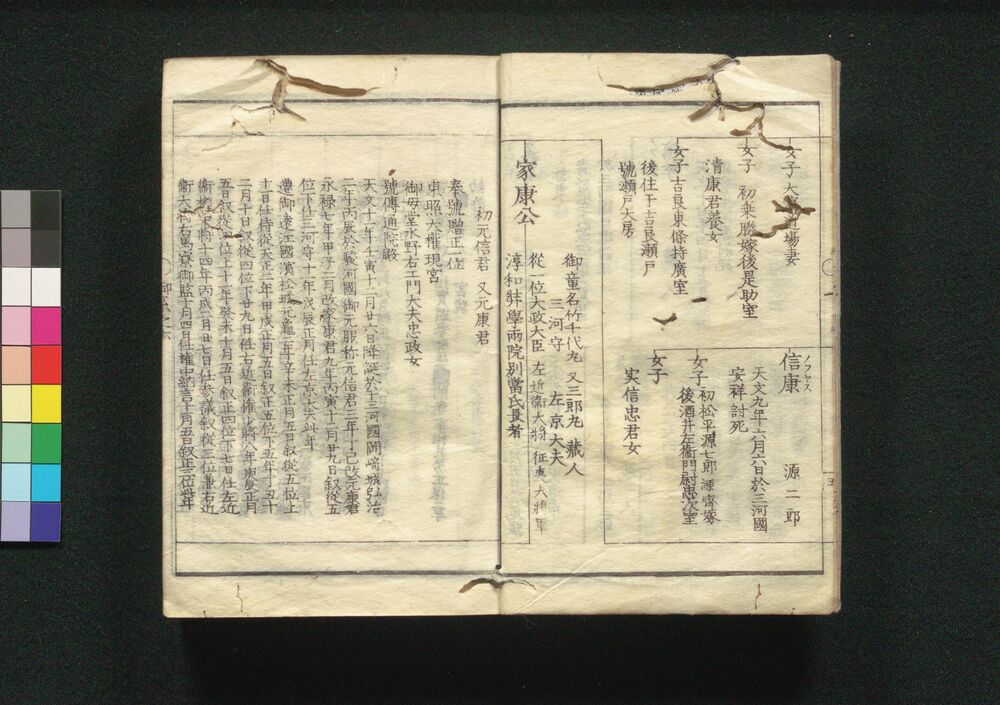 女子
女子 初乗勝嫁後是助室
清康君養女
女子 吉良東條持廣室
後住于吉良瀬戸
號瀬戸大房
信康 源二郎
ノフヤス
天文九年六月六日於三河國
安祥討死
女子 初松平源七郎源齊室
後酒井左衞門尉忠次室
女子
実信忠君女
家康公
御童名竹千代丸 又三郎丸 藏人
三河守 左京大夫
從一位大政大臣 左近衞大将 征夷大将軍
淳和弉學兩院別當氏長者
初元信君 又元康君
奉號贈正一位
東照大權現宮
御母堂水野右エ門大夫忠政女
號傳通院殿
天文十年壬寅十二月廿六日降誕於三河國岡﨑城弘治
二年丙辰於駿河國御元服称元信君三年丁巳改元康君
永禄七年甲子二月改家康君九年丙寅十二月廿九日叙從五
位下任三河守十一年戊辰正月任左京大夫此年
遷御遠江國濱松城元亀二年辛未正月五日叙從五位上
十一日任侍從天正二年甲戌正月五日叙正五位下五年丁丑十
二月十日叙從四位下廿九日任右近衞權少將八年庚辰正月
五日叙從四位上十一年癸未十月五日叙正四位下七日任左近
衞權中将十四年丙戌二月廿七日任参議叙從三位兼右近
衞大将右馬寮御監十月四日任權中納言十一月五日叙正三位此年